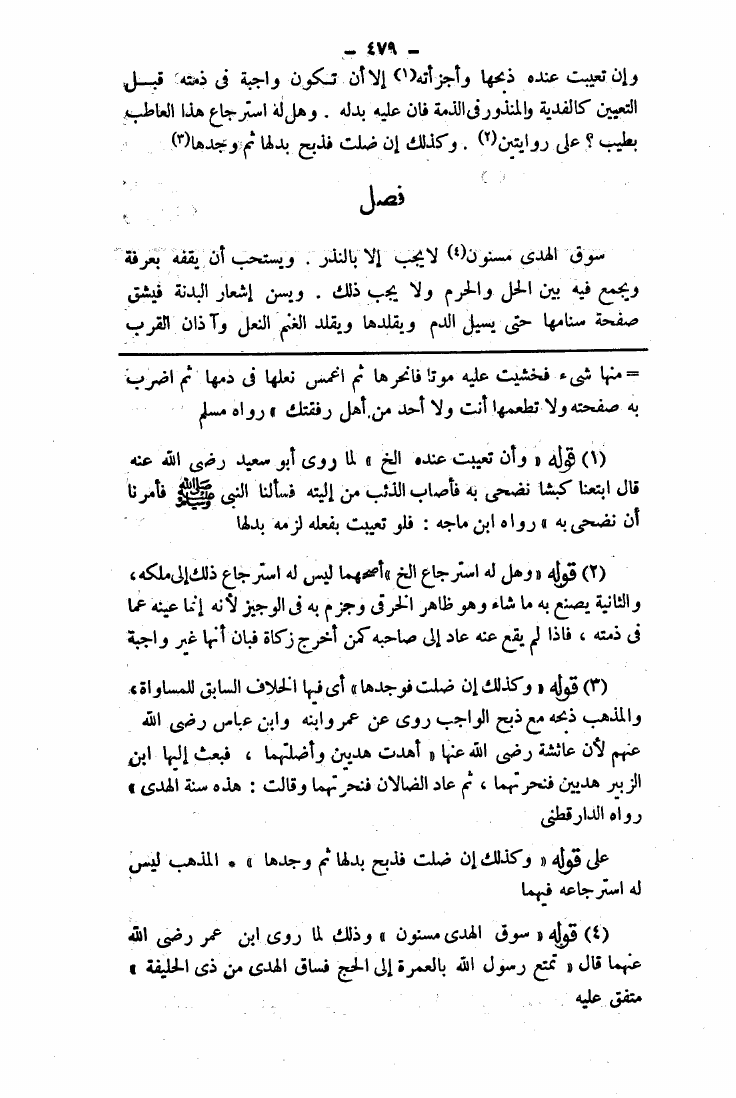 — ٤٧٩ —
وإن تعيبت عنده ذبحها وأجزأته(١) إلا أن تكون واجبة فى ذمته قبل
التعيين كالفدية والمنذور فى الذمة فان عليه بدله . وهل له استرجاع هذا العاطب
بطيب ؟ على روايتين(٢) . وكذلك إن ضلت فذبح بدلها ثم وجدها(٣)
فصل
سوق الهدى مسنون(٤) لا يجب إلا بالنذر . ويستحب أن يقفه بعرفة
ويجمع فيه بين الحل والحرم ولا يجب ذلك . ويسن إشعار البدنة فيشق
صفحة سنامها حتى يسيل الدم ويقلدها ويقلد الغنم النعل وآذان القرب
= منها شىء فخشيت عليه موتا فانحرها ثم اغمس نعلها فى دمها ثم اضرب
به صفحته ولا تطعمها أنت ولا أحد من أهل رفقتك » رواه مسلم
(١) قوله « وأن تعيبت عنده الخ » لما روى أبو سعيد رضى الله عنه
قال ابتعنا كبشا نضحى به فأصاب الذئب من إليته فسألنا النبى ﷺ فأمرنا
أن نضحى به » رواه ابن ماجه : فلو تعيبت بفعله لزمه بدلها
(٢) قوله « وهل له استرجاع الخ » أصحهما ليس له استرجاع ذلك إلى ملكه ،
والثانية يصنع به ما شاء وهو ظاهر الخرقى وجزم به فى الوجيز لأنه إنما عينه عما
فى ذمته ، فاذا لم يقع عنه عاد إلى صاحبه كمن أخرج زكاة فبان أنها غير واجبة
(٣) قوله « وكذلك إن ضلت فوجدها » أى فيها الخلاف السابق للمساواة ،
والمذهب ذبحه مع ذبح الواجب روى عن عمر وابنه وابن عباس رضى الله
عنهم لأن عائشة رضى الله عنها « أهدت هديين وأضلتهما ، فبعث إليها ابن
الزبير هديين فنحرتهما ، ثم عاد الضالان فنحرتهما وقالت : هذه سنة الهدى »
رواه الدارقطنى
على قوله « وكذلك إن ضلت فذبح بدلها ثم وجدها » • المذهب ليس
له استرجاعه فيهما
(٤) قوله « سوق الهدى مسنون » وذلك لما روى ابن عمر رضى الله
عنهما قال « تمتع رسول الله بالعمرة إلى الحج فساق الهدى من ذى الحليفة »
متفق عليه